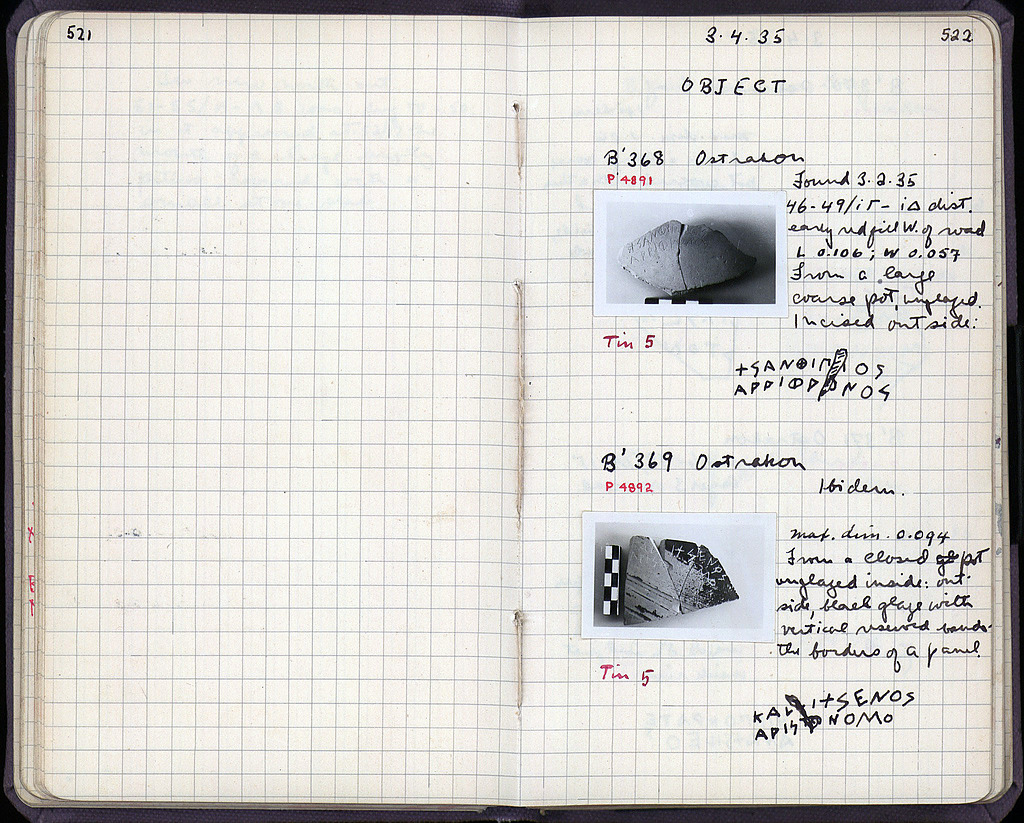 521
3·4·35
522
OBJECT
B'368 Ostrakon
P 4891
Found 3·2·35
46-49/ιΓ-ιΔ dist.
early red fill W. of road
L 0.106; W 0.057
From a large
coarse pot, unglazed.
Incised outside:
Tin 5
+SANΘIΠΠOS
APPIΦPONOS
B'369 Ostrakon
P 4892
Ibidem.
max. dim. 0.094
From a closed pot
unglazed inside: out-
side, black glaze with
vertical reserved bands-
the borders of a panel.
Tin 5
KAL I+SENOS
API NOMO